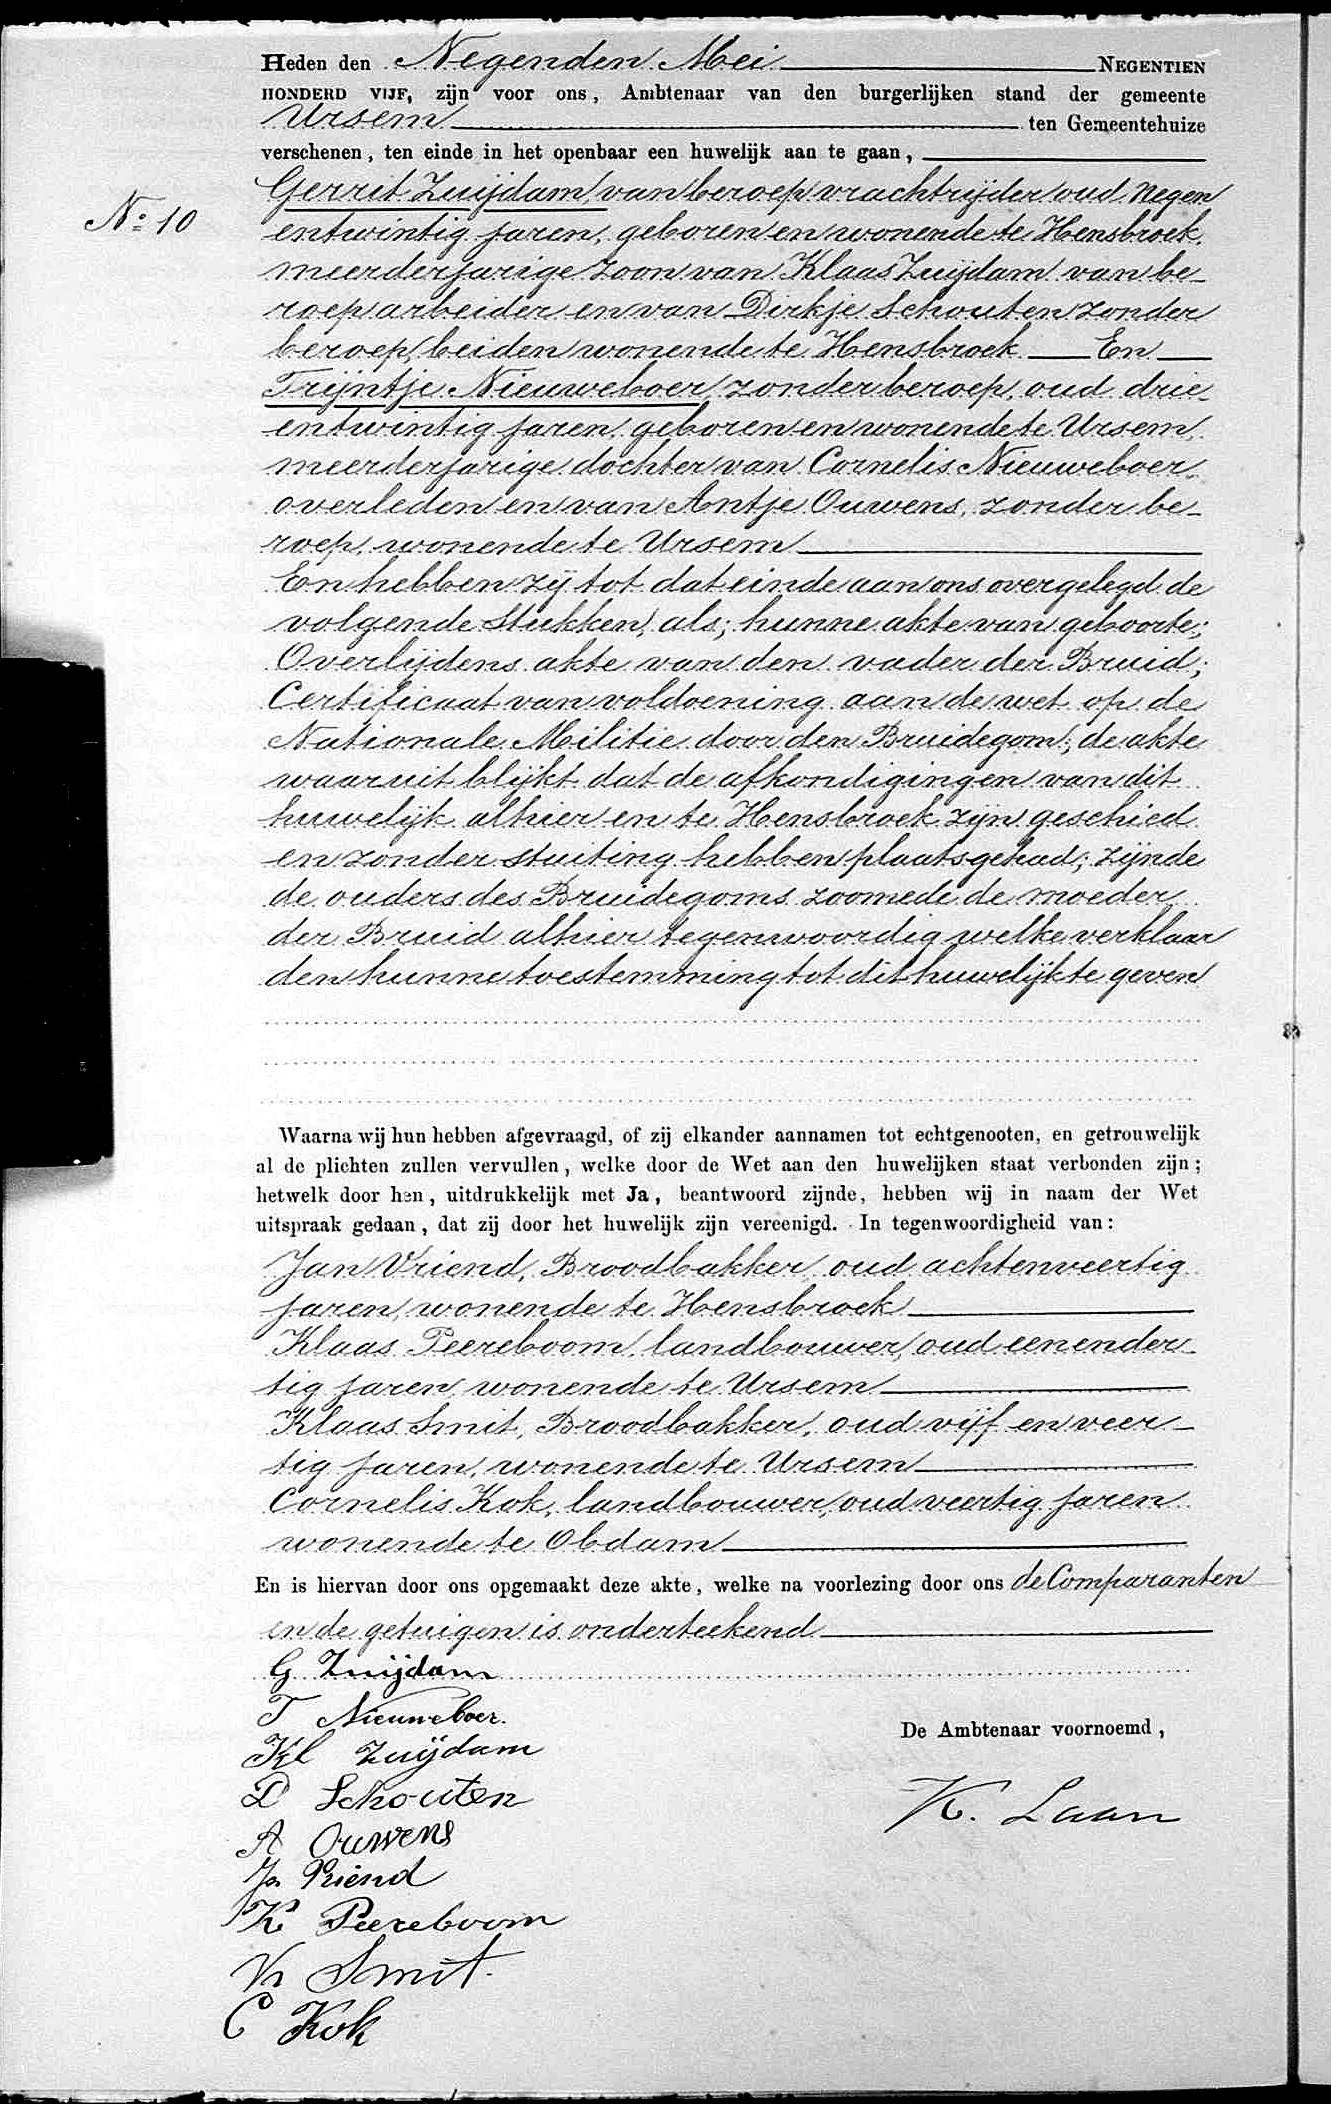 Heden den Negenden Mei NEGENTIEN
HONDERD VIJF, zijn voor ons, Ambtenaar van den burgerlijken stand der gemeente
Ursem ten Gemeentehuize
verschenen, ten einde in het openbaar een huwelijk aan te gaan,
No 10
Gerrit Zuijdam, van beroep vrachtrijder oud negen
entwintig jaren, geboren en wonende te Hensbroek,
meerderjarige zoon van Klaas Zuijdam van be-
roep arbeider en van Dirkje Schouten zonder
beroep, beiden wonende te Hensbroek En
Trijntje Nieuweboer, zonder beroep, oud drie-
entwintig jaren, geboren en wonende te Ursem,
meerderjarige dochter van Cornelis Nieuweboer
overleden en van Antje Ouwens, zonder be-
roep, wonende te Ursem
En hebben zij tot dat einde aan ons overgelegd de
volgende stukken, als; hunne akte van geboorte;
Overlijdens akte van den vader der Bruid;
Certificaat van voldoening aan de wet op de
Nationale Militie door den Bruidegom; de akte
waaruit blijkt dat de afkondigingen van dit
huwelijk alhier en te Hensbroek zijn geschied
en zonder stuiting hebben plaatsgehad; zijnde
de ouders des Bruidegoms zoomede de moeder
der Bruid alhier tegenwoordig welke verklaar
den hunne toestemming tot dit huwelijk te geven
Waarna wij hun hebben afgevraagd, of zij elkander aannamen tot echtgenooten, en getrouwelijk
al de plichten zullen vervullen, welke door de Wet aan den huwelijken staat verbonden zijn;
hetwelk door hen, uitdrukkelijk met Ja, beantwoord zijnde, hebben wij in naam der Wet
uitspraak gedaan, dat zij door het huwelijk zijn vereenigd. In tegenwoordigheid van:
Jan Vriend, Broodbakker, oud achtenveertig
jaren, wonende te Hensbroek
Klaas Peereboom, landbouwer, oud eenender-
tig jaren, wonende te Ursem
Klaas Smit, Broodbakker, oud vijf en veer-
tig jaren, wonende te Ursem
Cornelis Kok, landbouwer, oud veertig jaren
wonende te Obdam
En is hiervan door ons opgemaakt deze akte, welke na voorlezing door ons de Comparanten
en de getuigen is onderteekend
G Zuijdam
T Nieuweboer.
Kl Zuijdam
D Schouten
A Ouwens
Jn Vriend
K Peereboom
Kl Smit.
C Kok
De Ambtenaar voornoemd,
K. Laan